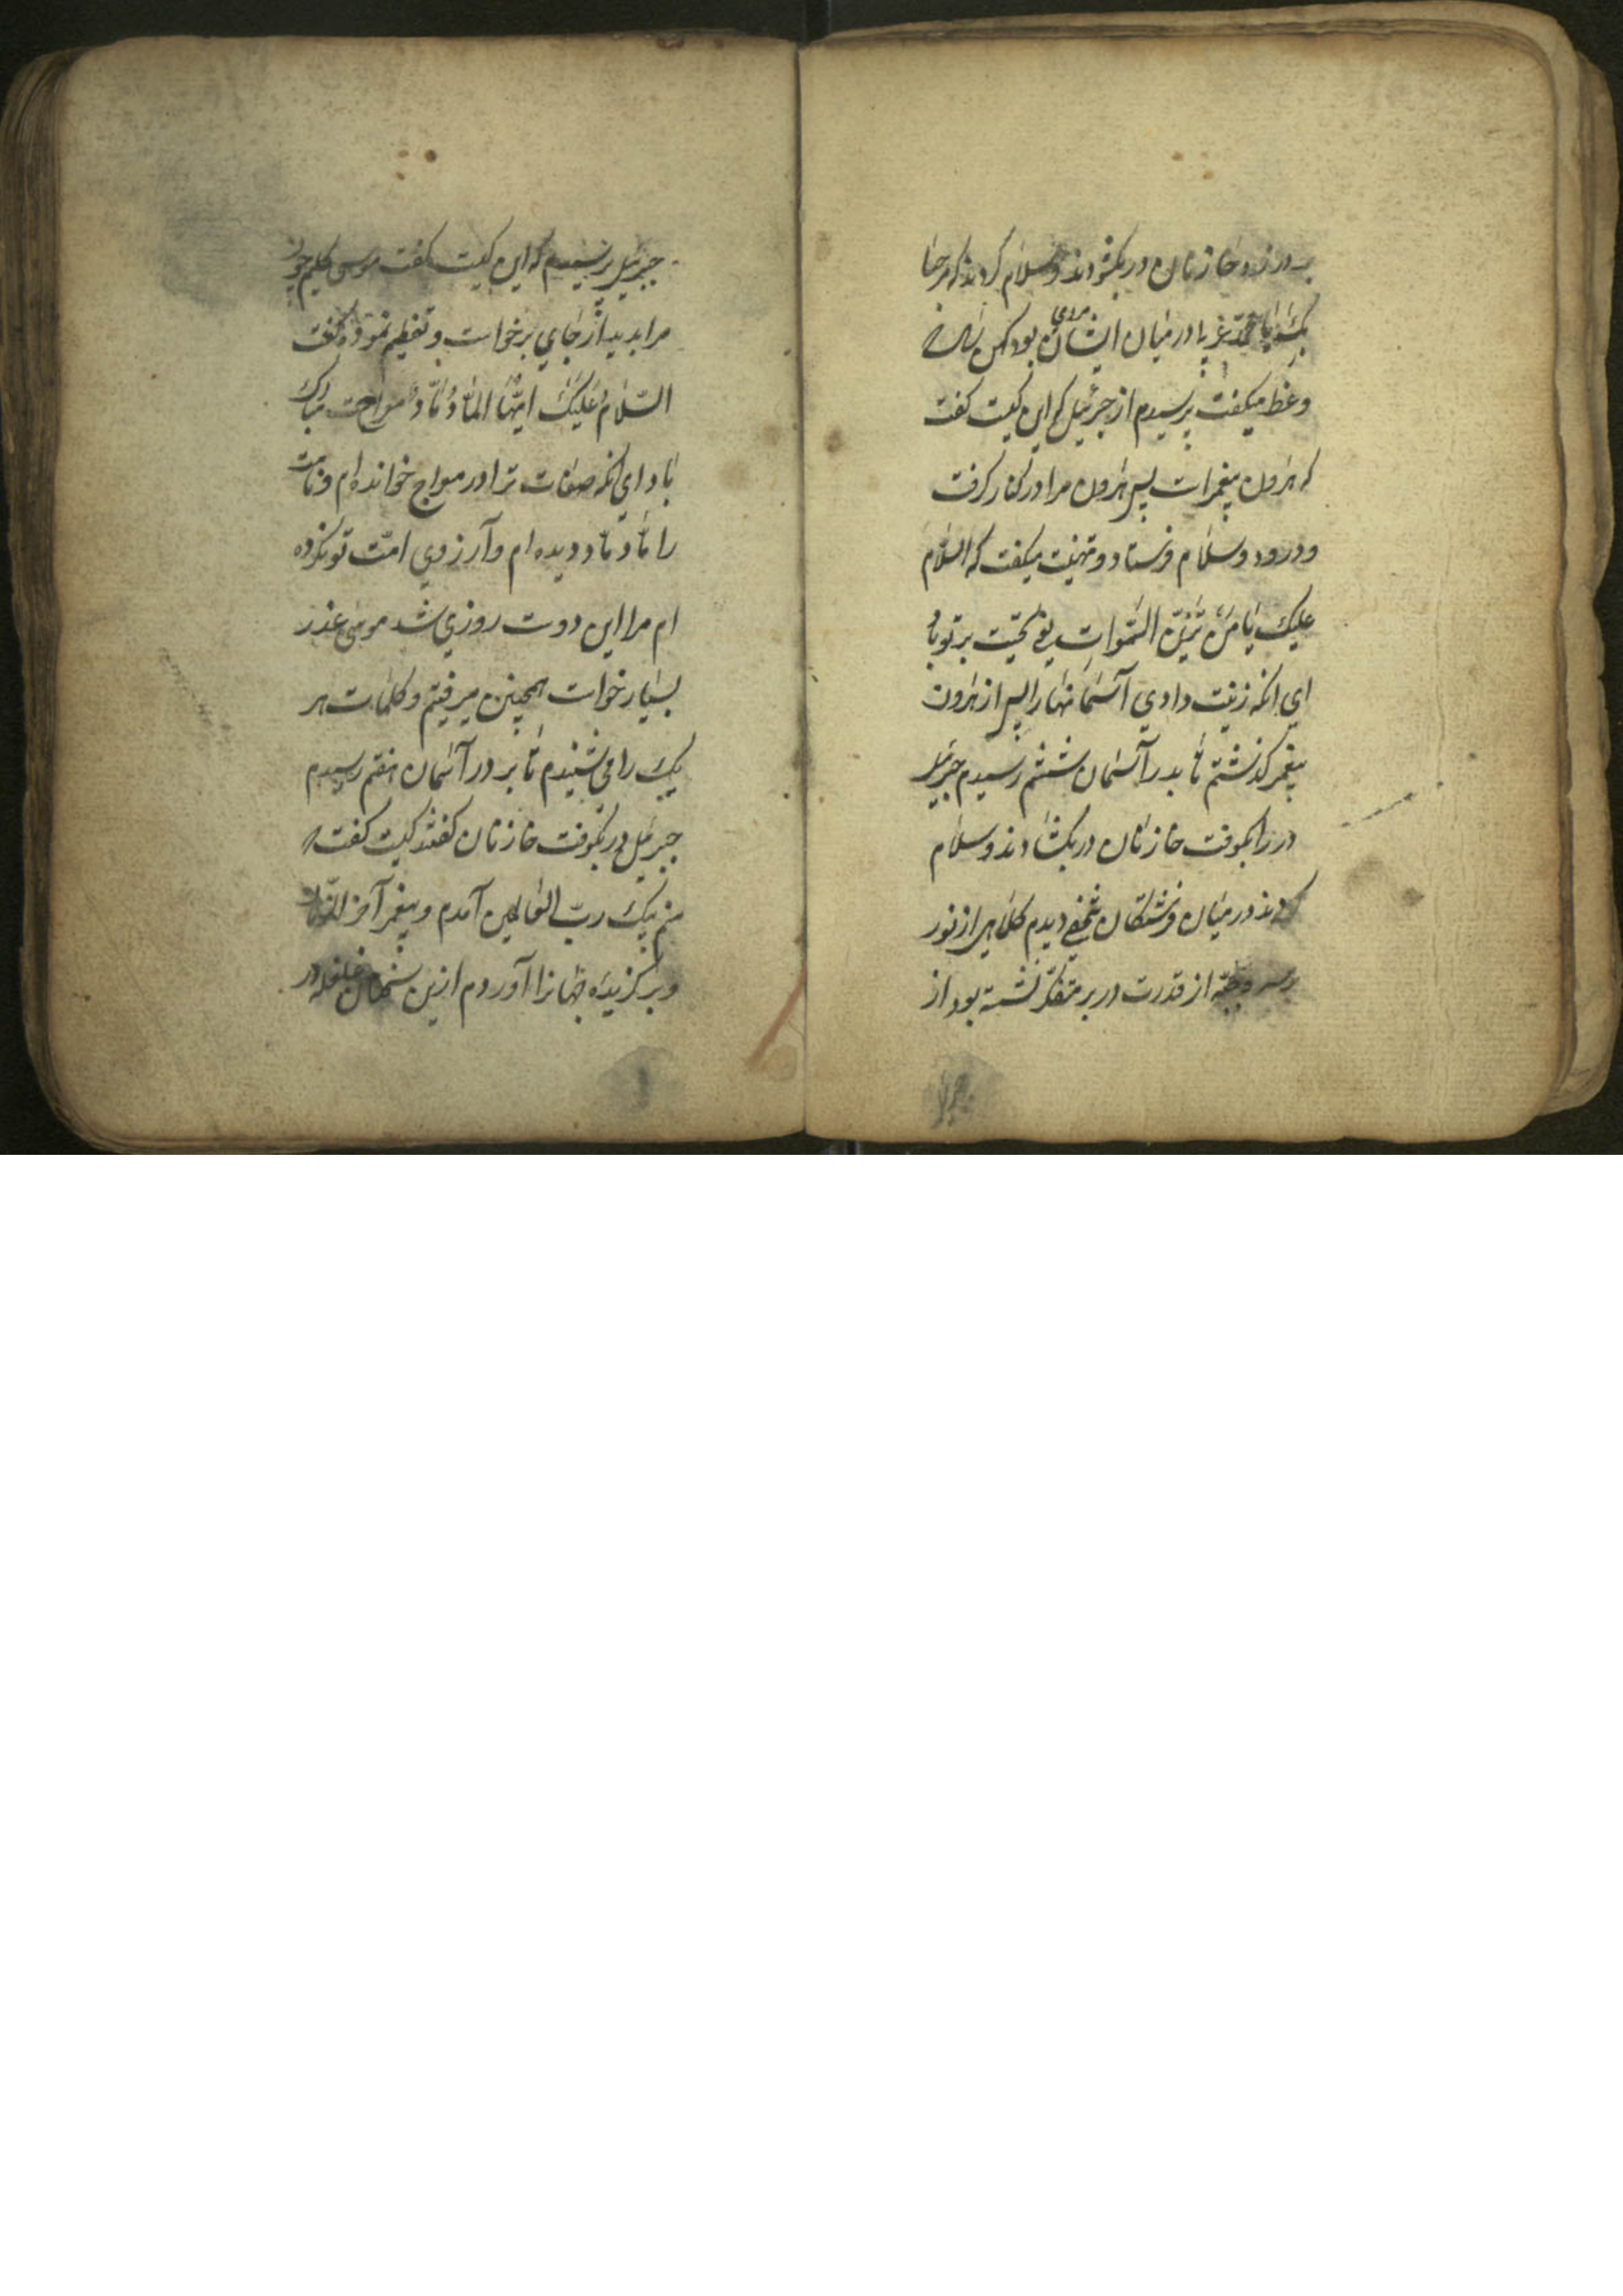 در زد خازنان در بکشودند و سلام کردند که مرحبا
بک یا محمد در میان ایشان مردی بود کهن
وعظ میکفت پرسیدم از جبرئیل که این کیست کفت
که هرون پیغمبرات پس هرون مرا در کنار کرفت
و درود و سلام فرستاد و تهنیت میکفت که السّلام
علیک یا من تزیّن السّموات یعنی تحیّت بر تو باد
ای انکه زینت دادی آسمانها را پس از هرون
پیغمبر کذشتم تا بدر آسمان ششم رسیدم جبرئیل
در را بکوفت خازنان در بکشادند و سلام
کردند در میان فرشتکان شخصی دیدم کلاهی از نور
بر سر و جبّه از قدرت در بر متفکّر نشسته بود از
جبرئیل پرسیدم که این کیست کفت موسی کلیم چون
مرا بدید از جای برخواست و تعظیم نموده کفت
السّلام علیک ایّها الماد ماد معراجت مبارک
باد ای انکه صفات ترا در معراج خوانده ام و نامت
را ماد ماد دیده ام و آرزوی امّت تو کرده
ام مرا این دوت روزی شد موسی عذر
بسیار خواست همچنین میرفتیم و کلمات هر
یک را می شنیدم تا بر در آسمان هفتم رسیدم
جبرئیل در بکوفت خازنان کفتند کیست کفت
منم پیک ربّ العالمین آمدم و پیغمبر آخر الزّمان
و برکزیده جهانرا آوردم ازین سخنان غلغله در